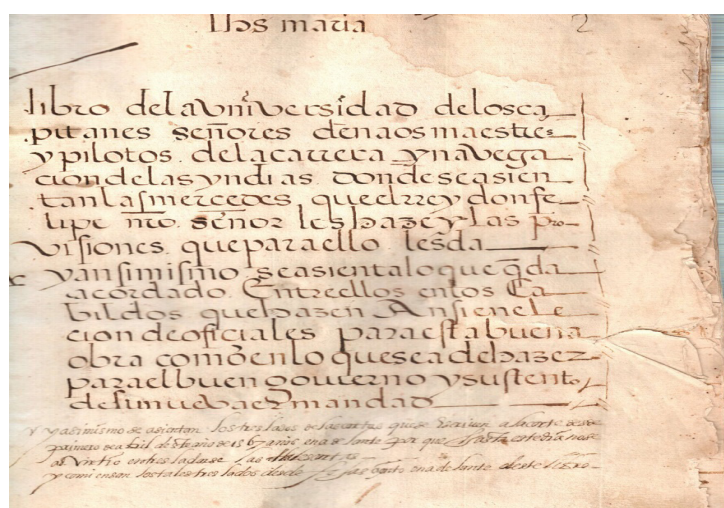 Ihos maria 2
libro delavniversidad delosca
pitanes señores denaos maestres
y pilotos. delacarrera ynavega
ciondelasyndias. dondeseasien
tanlasmercedes. queelrrey donfe
lipe nro. señor leshaze ylas pro
visiones. queparaello. lesda
yansimismo seasientaloque qda
acordado. Entreellos enlos Ca
bildos quehazen Ansienele
ciondeoficiales paraestabuena
obra comoenlo queseadehazer
paraelbuen govierno ysustento
desunuevaermandad
y yasimismo se asientan los treslados delascartas quese escriven a lacorte desde
primero deabril deste año de 1567 años en a de lante por que hasta estedia nose
advirtio entresladarse las
y comiensan los tales treslados desde en a de lante deste libro